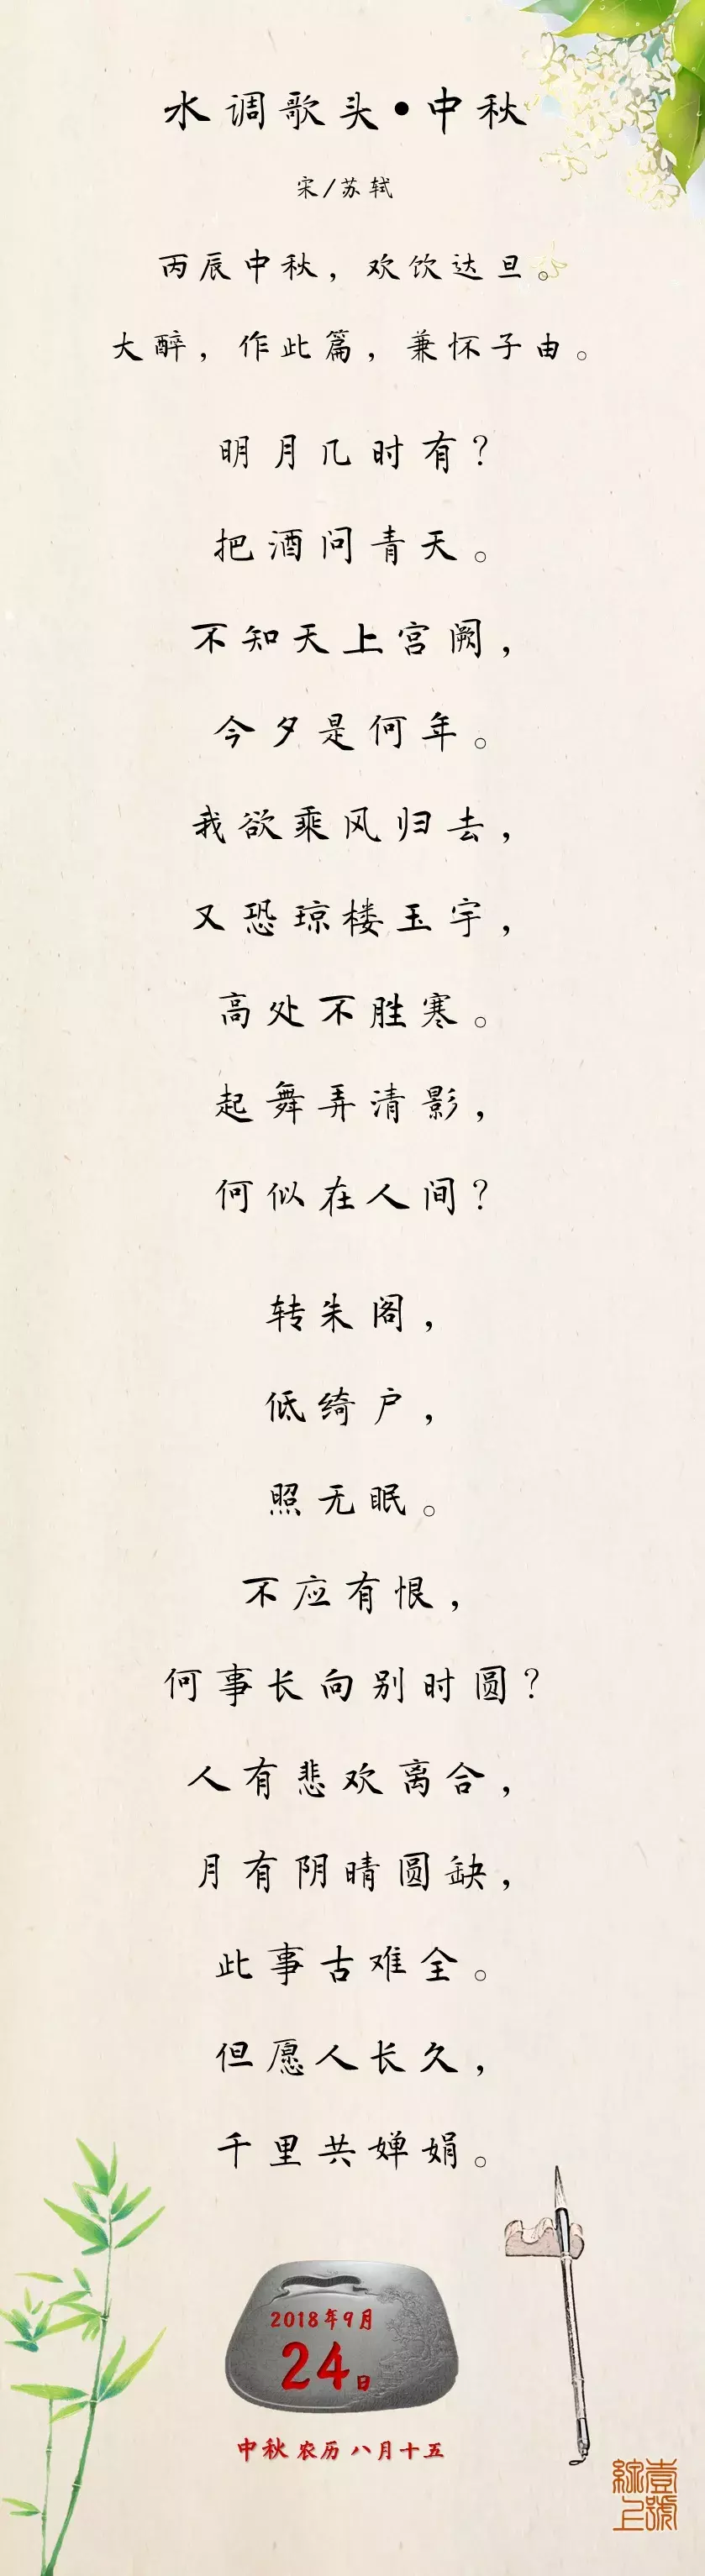 水调歌头•中秋
宋/苏轼
丙辰中秋，欢饮达旦。
大醉，作此篇，兼怀子由。
明月几时有？
把酒问青天。
不知天上宫阙，
今夕是何年。
我欲乘风归去，
又恐琼楼玉宇，
高处不胜寒。
起舞弄清影，
何似在人间？
转朱阁，
低绮户，
照无眠。
不应有恨，
何事长向别时圆？
人有悲欢离合，
月有阴晴圆缺，
此事古难全。
但愿人长久，
千里共婵娟。
2018年9月
24日
中秋 农历 八月十五
壹號
綜上